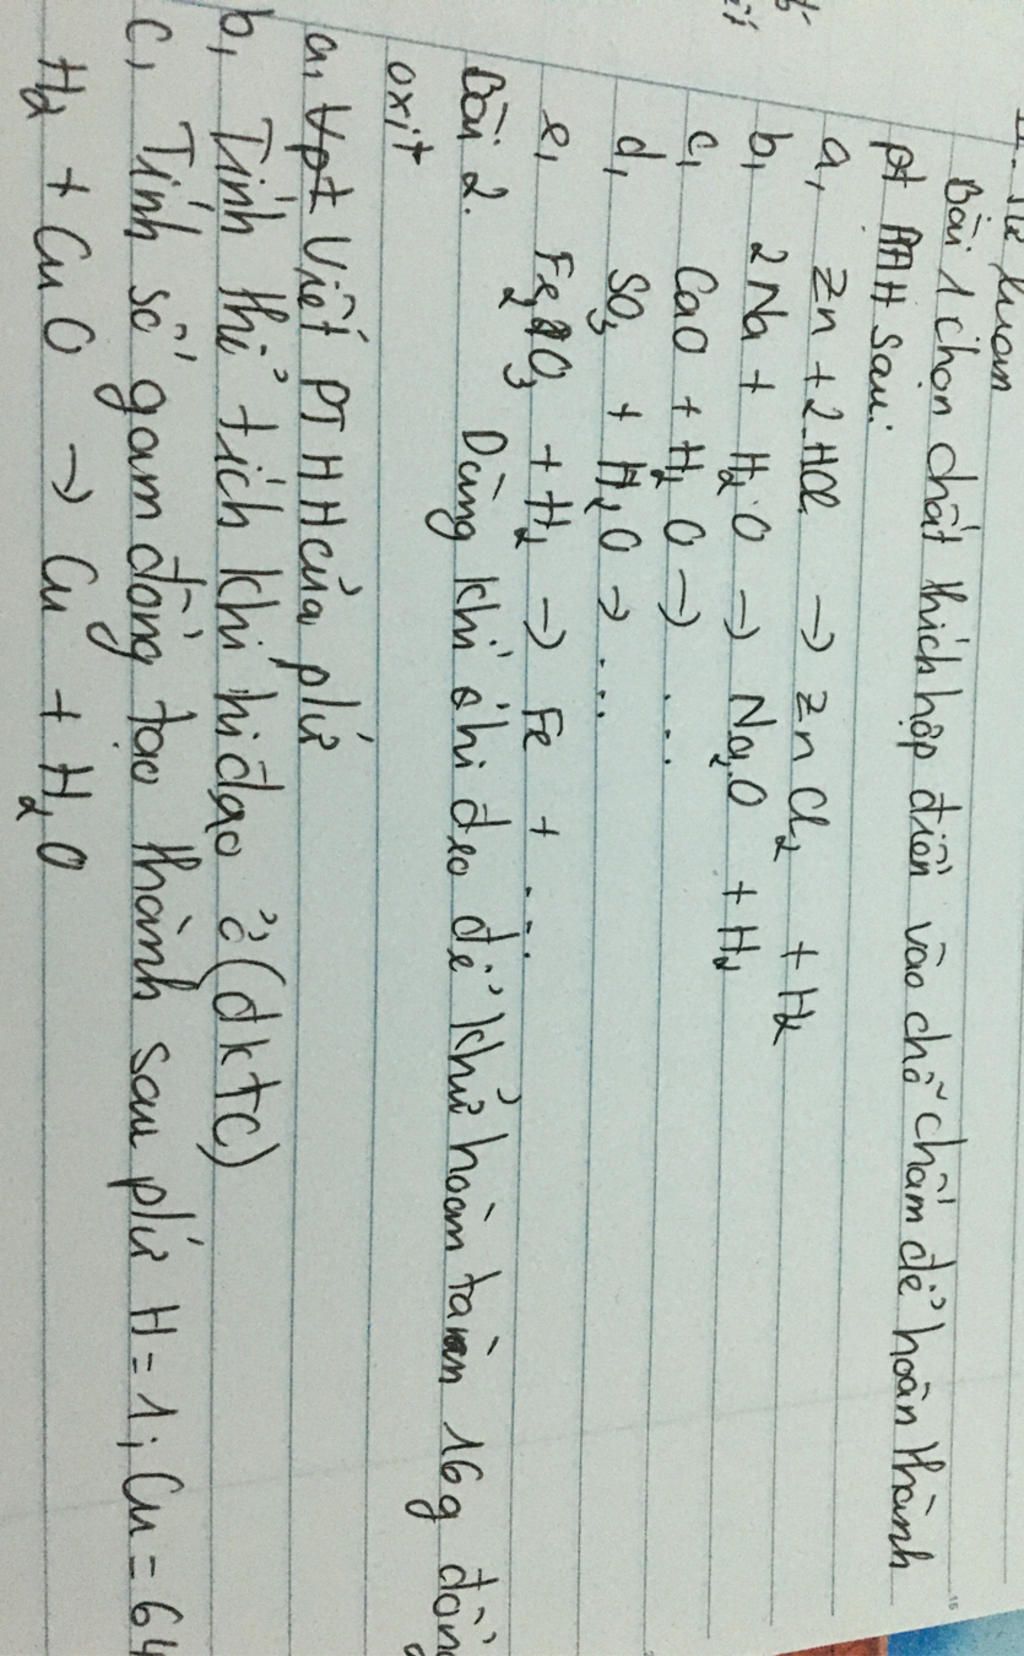 II. Tự luận
Bài 1 chọn chất thích hợp điền vào chỗ chấm để hoàn thành
pt HH sau:
a, Zn + 2HCl → ZnCl2 + H2
b, 2Na + H2O → Na2O + H2
c, CaO + H2O → ...
d, SO3 + H2O → ...
e, Fe2O3 + H2 → Fe + ...
Bài 2. Dùng khí hiđro để khử hoàn toàn 16g đồng
oxit
a, Viết PTHH của pứ
b, Tính thể tích khí hiđro ở (đktc)
c, Tính số gam đồng tạo thành sau pứ H=1; Cu=64
H2 + CuO → Cu + H2O